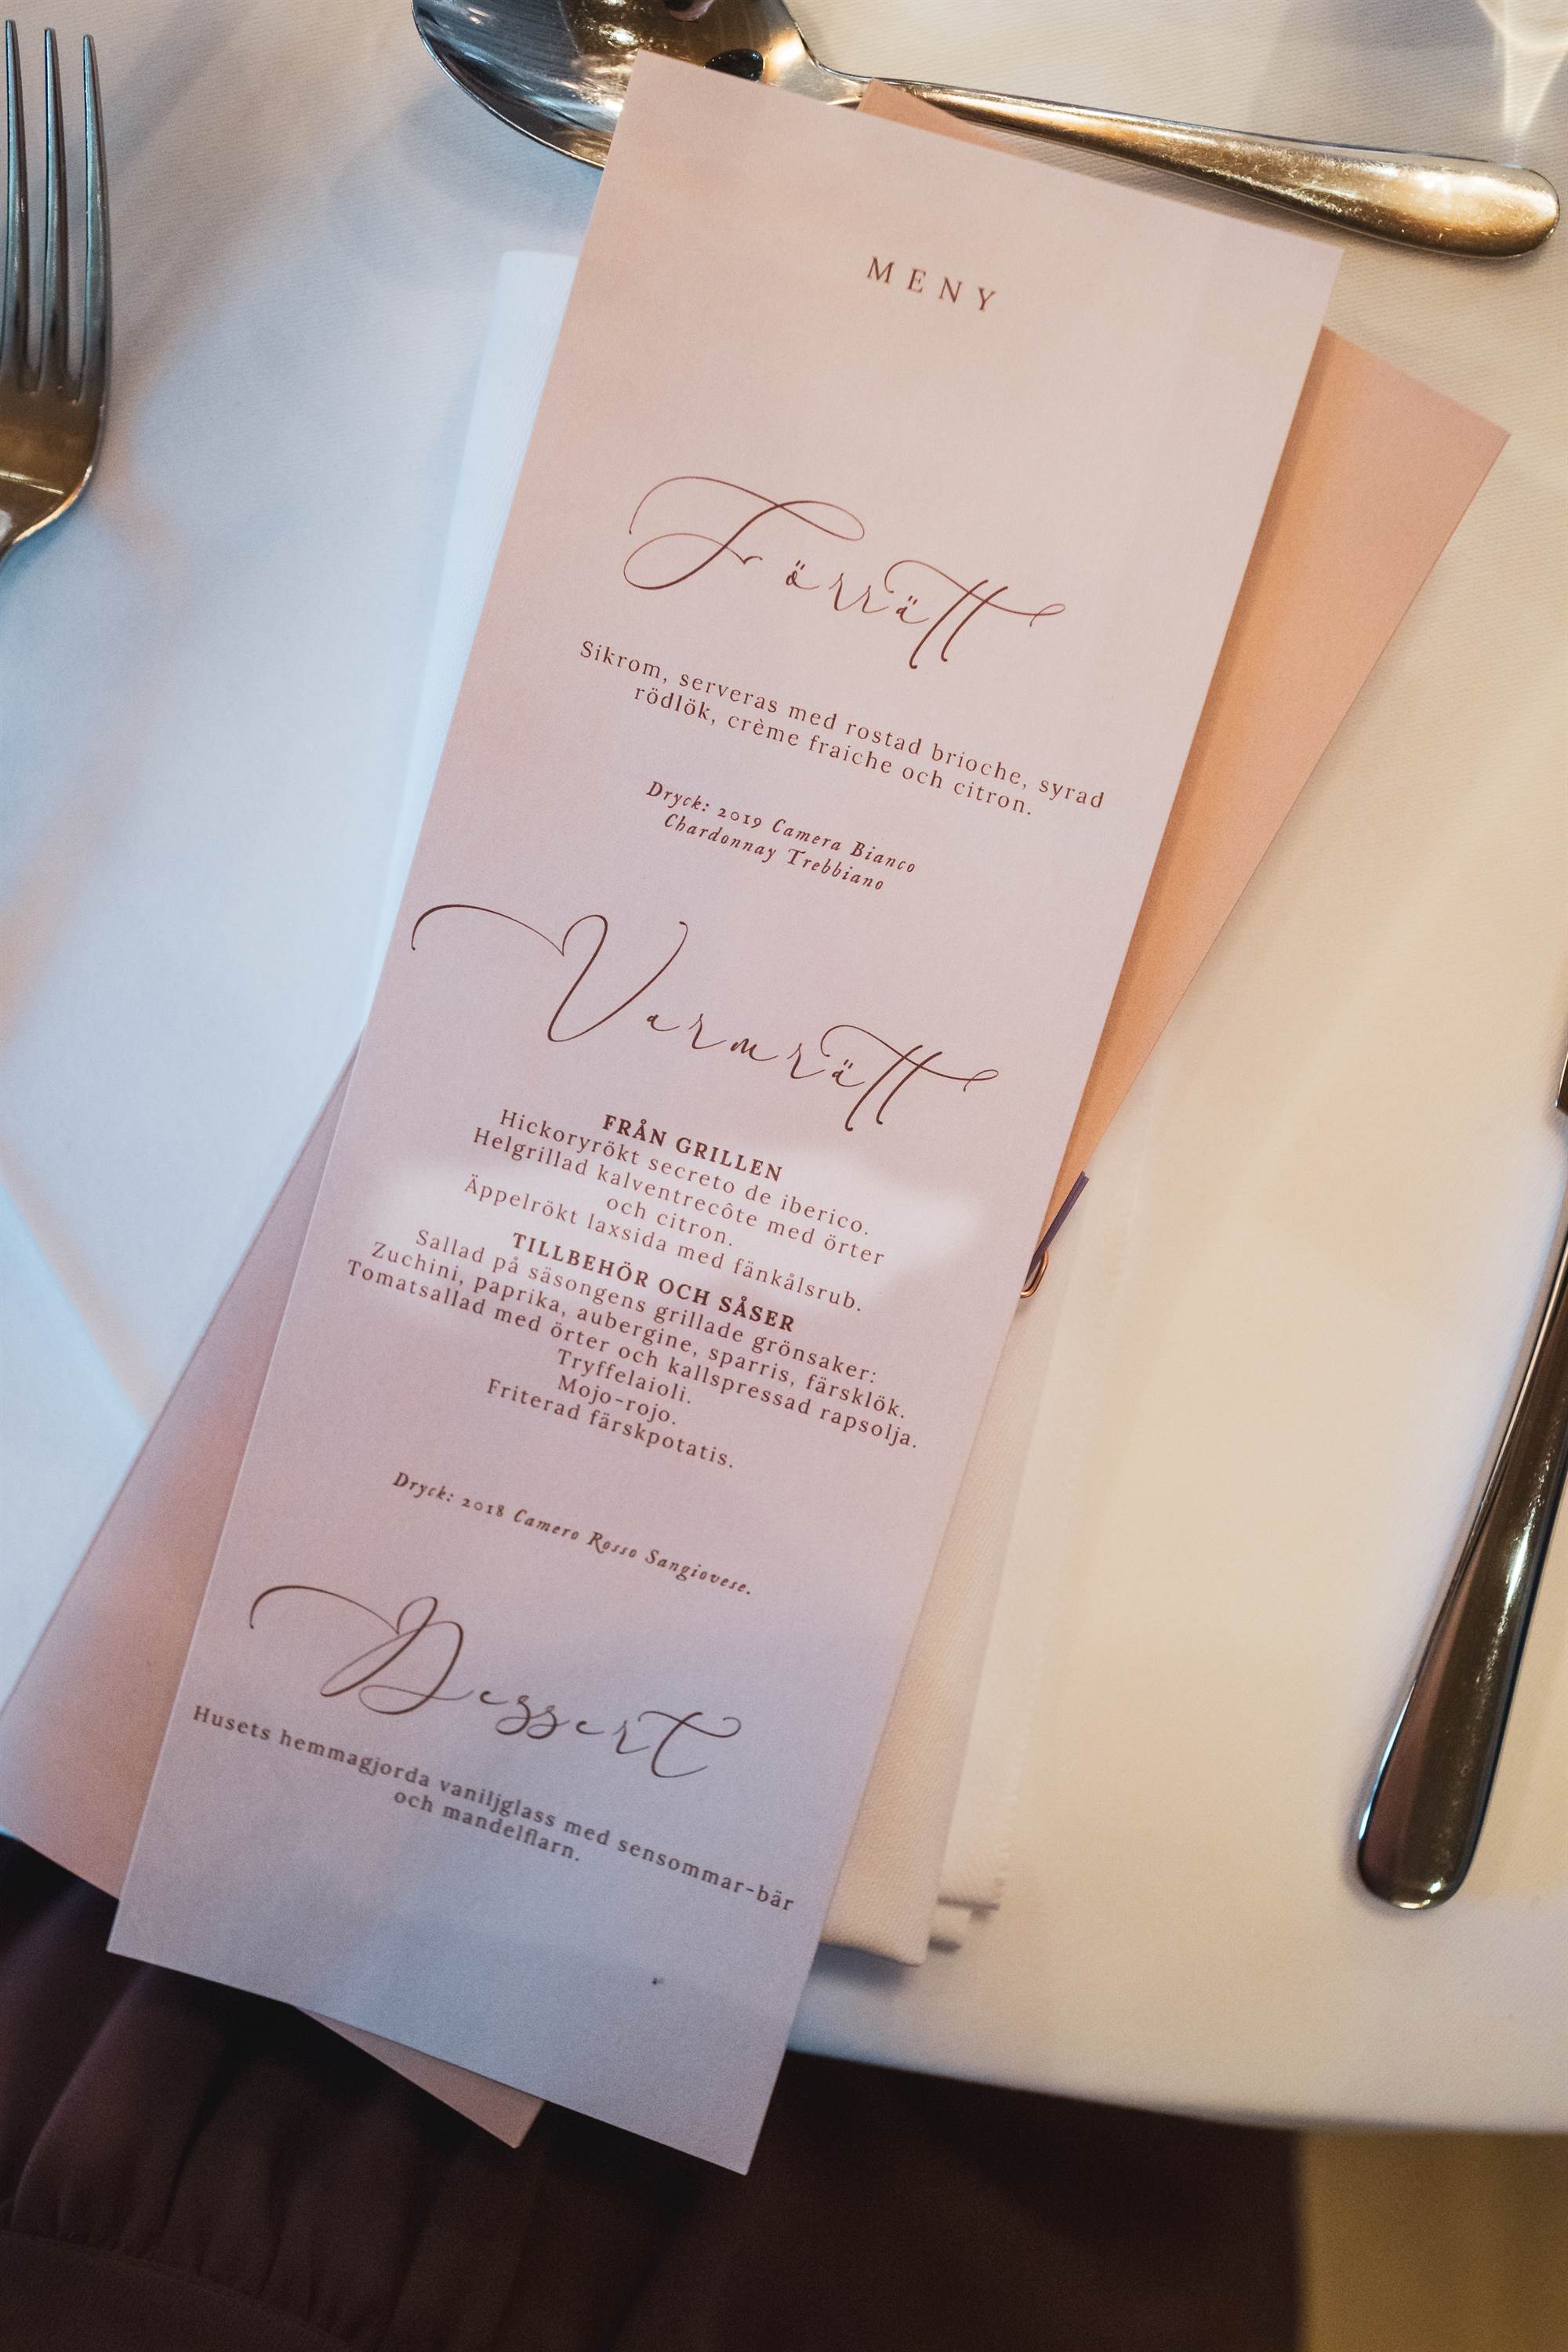 MENY
Förrätt
Sikrom, serveras med rostad brioche, syrad
rödlök, crème fraiche och citron.
Dryck: 2019 Camera Bianco
Chardonnay Trebbiano
Varmrätt
FRÅN GRILLEN
Hickoryrökt secreto de iberico.
Helgrillad kalventrecôte med örter
och citron.
Äppelrökt laxsida med fänkålsrub.
TILLBEHÖR OCH SÅSER
Sallad på säsongens grillade grönsaker:
Zuchini, paprika, aubergine, sparris, färsklök.
Tomatsallad med örter och kallspressad rapsolja.
Tryffelaioli.
Mojo-rojo.
Friterad färskpotatis.
Dryck: 2018 Camero Rosso Sangiovese.
Dessert
Husets hemmagjorda vaniljglass med sensommar-bär
och mandelflarn.